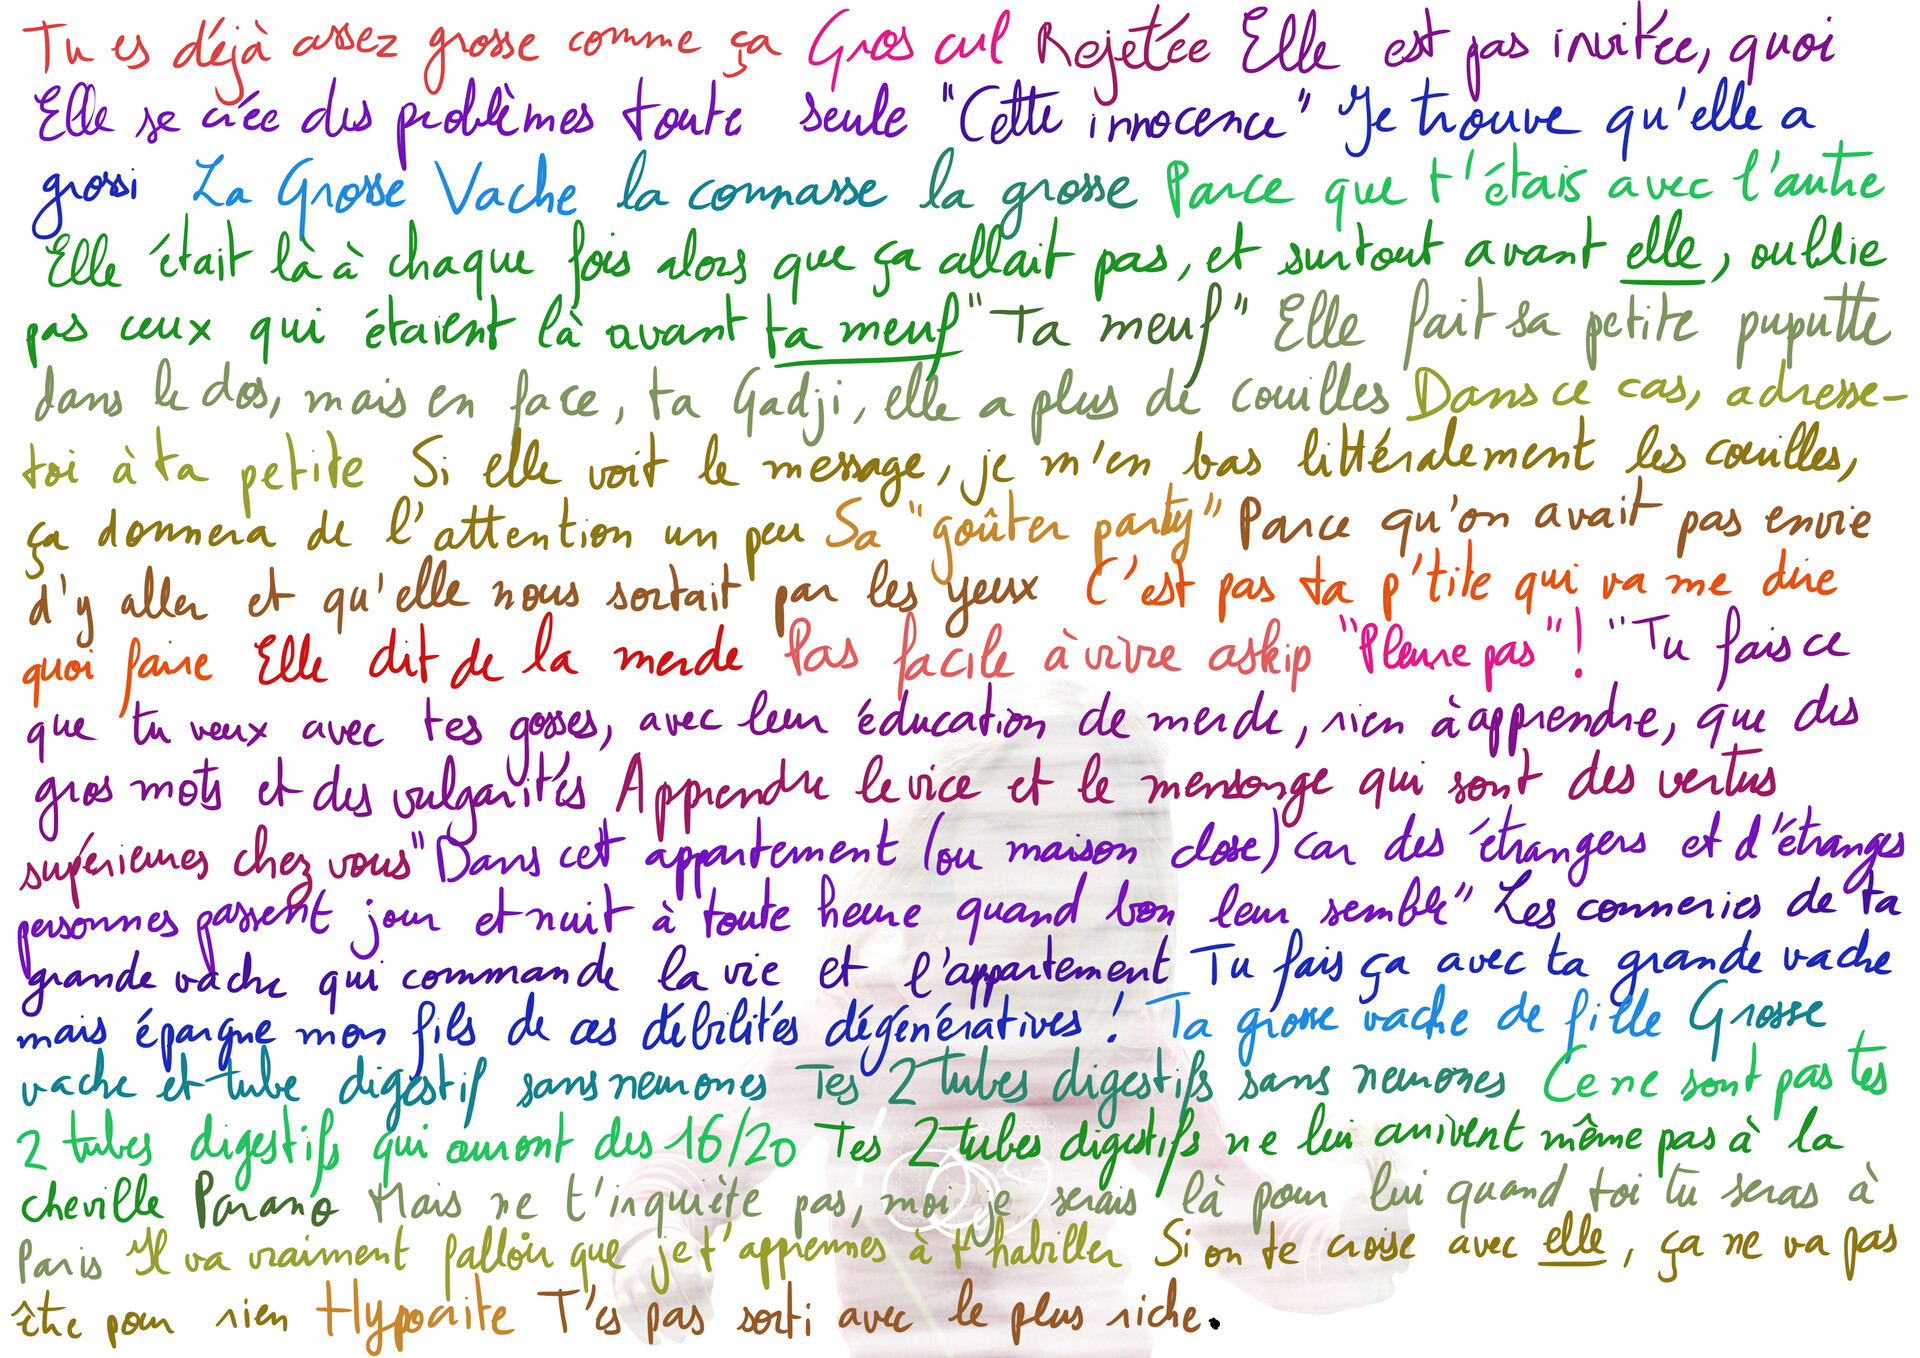 Tu es déjà assez grosse comme ça Gros cul Rejetée Elle est pas invitée, quoi
Elle se créé des problèmes toute seule "Cette innocence" Je trouve qu'elle a
grossi La Grosse Vache la connasse la grosse Parce que t'étais avec l'autre
Elle était là à chaque fois alors que ça allait pas, et surtout avant elle, oublie
pas ceux qui étaient là avant ta meuf "Ta meuf" Elle fait sa petite puputte
dans le dos, mais en face, ta Gadji, elle a plus de couilles Dans ce cas, adresse-
toi à ta petite Si elle voit le message, je m'en bas littéralement les couilles,
ça donnera de l'attention un peu Sa "goûter party" Parce qu'on avait pas envie
d'y aller et qu'elle nous sortait par les yeux C'est pas ta p'tite qui va me dire
quoi faire Elle dit de la merde Pas facile à vivre askip "Pleure pas"! "Tu fais ce
que tu veux avec tes gosses, avec leur éducation de merde, rien à apprendre, que des
gros mots et des vulgarités Apprendre le vice et le mensonge qui sont des vertus
supérieures chez vous" "Dans cet appartement (ou maison close) car des étrangers et d'étranges
personnes passent jour et nuit à toute heure quand bon leur semble" Les conneries de ta
grande vache qui commande la vie et l'appartement Tu fais ça avec ta grande vache
mais épargne mon fils de ces débilités dégénératives ! Ta grosse vache de fille Grosse
vache et tube digestif sans neurones Tes 2 tubes digestifs sans neurones Ce ne sont pas tes
2 tubes digestifs qui auront des 16/20 Tes 2 tubes digestifs ne lui arrivent même pas à la
cheville Parano Mais ne t'inquiète pas, moi je serais là pour lui quand toi tu seras à
Paris Il va vraiment falloir que je t'apprennes à t'habiller Si on te croise avec elle, ça ne va pas
être pour rien Hypocrite T'es pas sorti avec le plus riche.